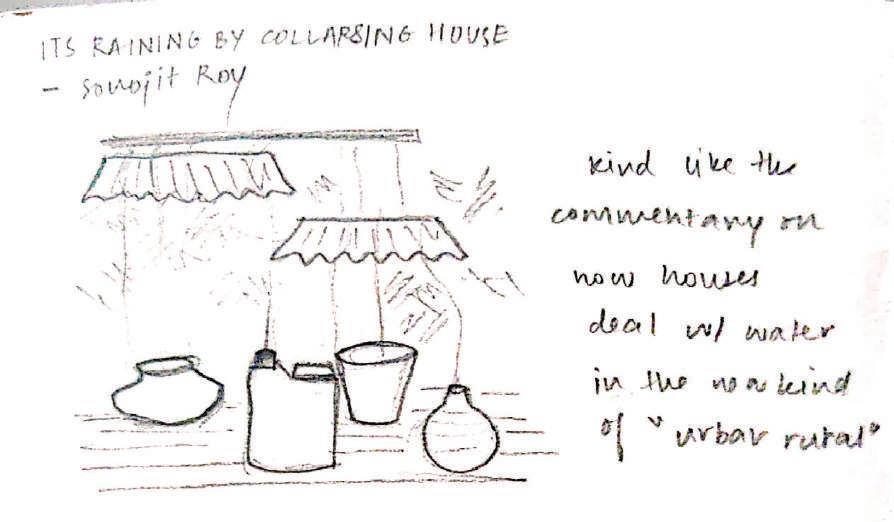 ITS RAINING BY COLLAPSING HOUSE
- Sonojit Roy
kind like the
commentary on
how houses
deal w/ water
in the new kind
of "urban rural"